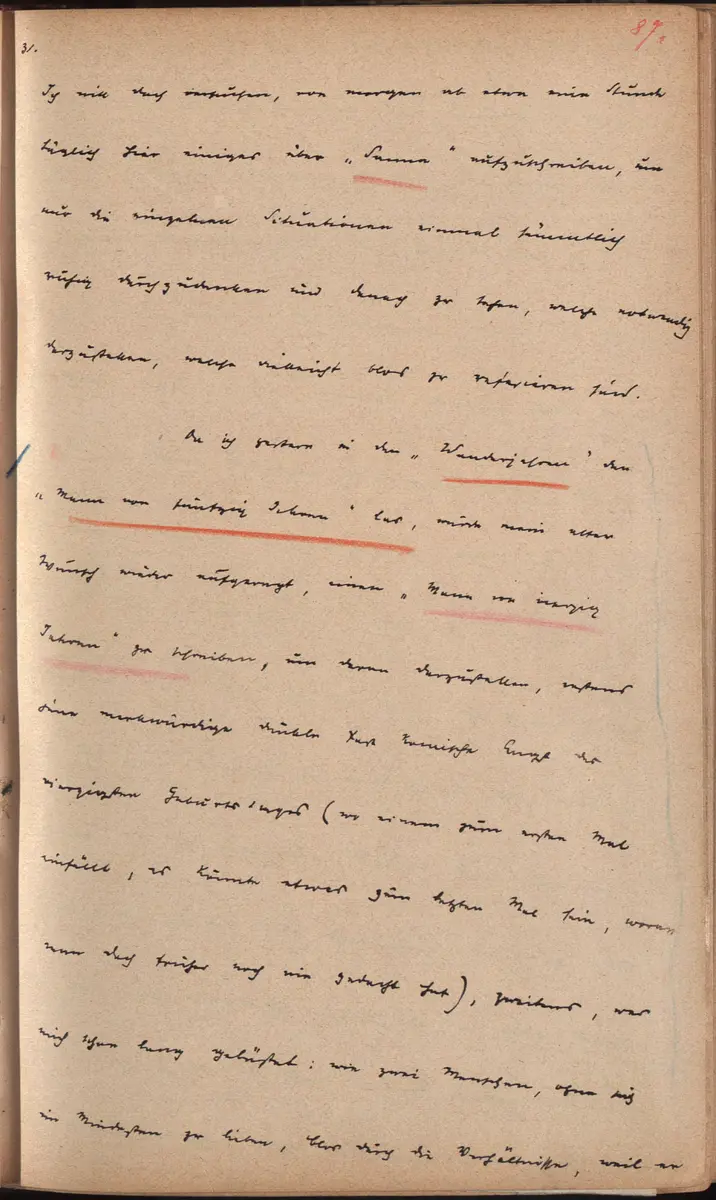 87.
31.
Ich will doch versuchen, von morgen ab etwa eine Stunde
täglich hier einiges über „Sanna“ aufzuschreiben, um
nur die einzelnen Situationen einmal sämmtlich
ruhig durchzudenken und danach zu sehen, welche notwendig
darzustellen, welche vielleicht blos zu referieren sind.
Da ich gestern in den „Wanderjahren“ den
„Mann von fünfzig Jahren“ las, wurde mein alter
Wunsch wieder aufgeregt, einen „Mann von vierzig
Jahren“ zu schreiben, um daran darzustellen, erstens
jene merkwürdige dunkle fast komische Angst des
vierzigsten Geburtstages (wo einem zum ersten Mal
einfällt, es könnte etwas zum letzten Mal sein, woran
man doch früher noch nie gedacht hat), zweitens, was
mich schon lang gelüstet: wie zwei Menschen, ohne sich
im Mindesten zu lieben, blos durch die Verhältnisse, weil er